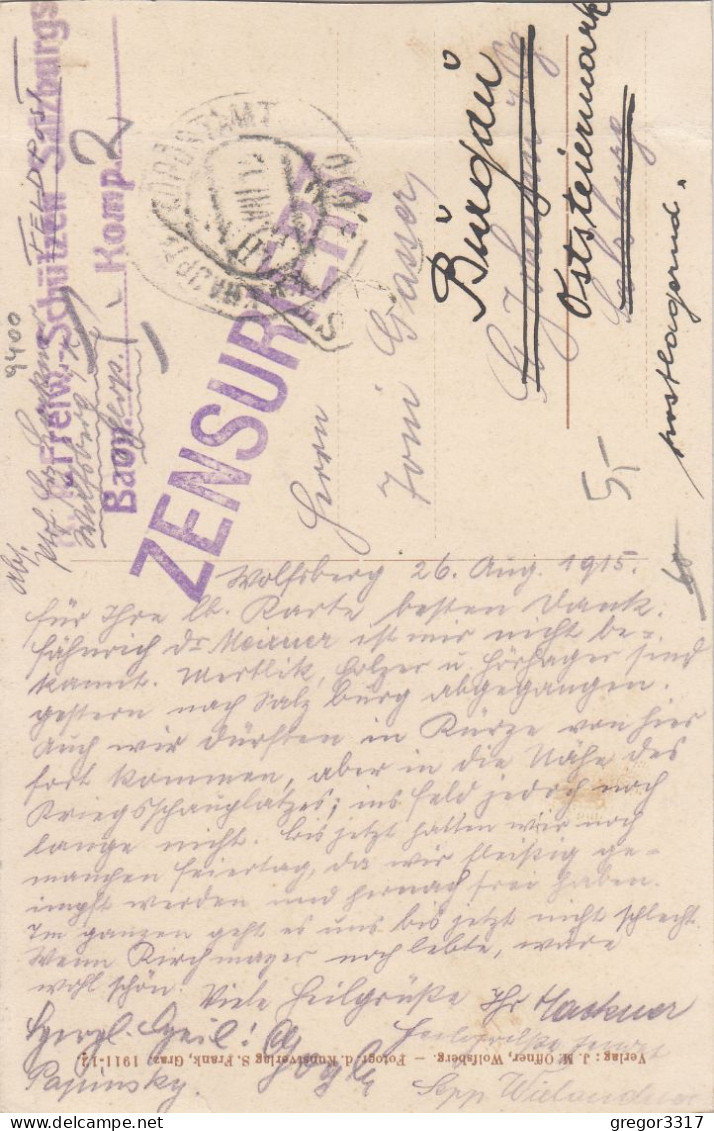 Wolfsberg 26. Aug. 1915.
für Ihre lb. Karte besten Dank.
fähnrich Dr Meixner ist mir nicht be-
kannt. Wertlik, Holzer u. Hörhager sind
gestern nach Salzburg abgegangen.
Auch wir dürften in Kürze von hier
fort kommen, aber in die Nähe des
Kriegsschauplatzes; ins Feld jedoch noch
lange nicht. Bis jetzt hatten wir noch
manchen Feiertag, da wir fleißig ge-
impft werden und hernach frei haben.
Im ganzen geht es uns bis jetzt nicht schlecht.
Wenn Kirchmayer noch lebte, wäre
wohl schön. Viele Heilgrüße Ihr
Herzl. Heil!
Sepp
Verlag: J. M. Offner, Wolfsberg. – Fotogr. d. Kunstverlag S. Frank, Graz, 1911-12
Herrn
Toni Gasser,
Burgau
Oststeiermark
postlagernd.
5,-
ZENSURIERT
Freiw.-Schützen Salzburgs
Baon. Komp. 2
FELDPOST
Abs.
Wolfsberg
9400
HAUPT FELDPOSTAMT
gregor3317